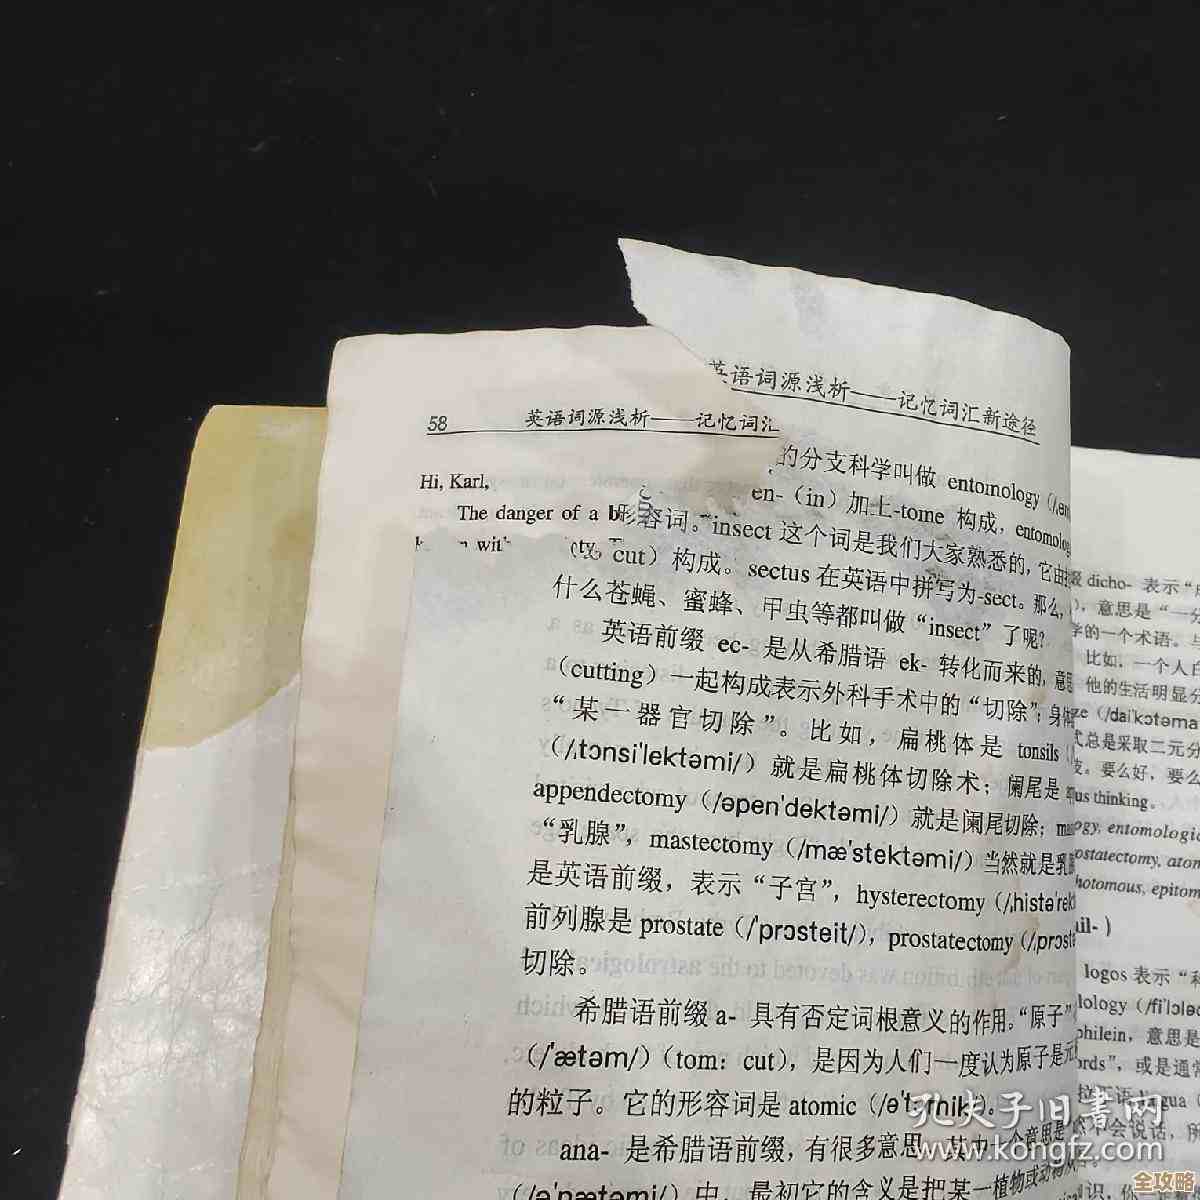 英语词源浅析——记忆词汇新途径
58 英语词源浅析——记忆词汇
Hi, Karl,
The danger of a b
with
的分支科学叫做 entomology (/,en
en-（in）加上-tome 构成，entomolog
形容词。insect 这个词是我们大家熟悉的，它由
cut）构成。sectus 在英语中拼写为-sect。那么，
什么苍蝇、蜜蜂、甲虫等都叫做“insect”了呢？
英语前缀 ec- 是从希腊语 ek- 转化而来的，意思
（cutting）一起构成表示外科手术中的“切除”；身体
“某一器官切除”。比如，扁桃体是 tonsils（
（/,tɔnsi'lektəmi/）就是扁桃体切除术；阑尾是
appendectomy（/əpen'dektəmi/）就是阑尾切除；
“乳腺”，mastectomy（/mæ'stektəmi/）当然就是乳腺
是英语前缀，表示“子宫”，hysterectomy（/,histə'rek
前列腺是 prostate（/'prɔsteit/），prostatectomy（/,prɔste
切除。
希腊语前缀 a- 具有否定词根意义的作用。“原子”
（/'ætəm/）（tom：cut），是因为人们一度认为原子是元
的粒子。它的形容词是 atomic（/ə'tɔmik/）。
ana- 是希腊语前缀，有很多意思，其中一个意思是
（/ə'nætəmi/）中，最初它的含义是把某一植物或动物
缀 dicho- 表示“
），意思是“一分
学的一个术语。
比如，一个人白
他的生活明显分
ze（/dai'kɔtəma
式总是采取二元分
支。要么好，要么
us thinking。
ogy, entomologic
ostatectomy, atom
hotomous, epitom
ail-）
logos 表示“科
lology（/fi'lɔləd
philein，意思是
ords”，或是通常
拉丁语 lingua（
不会说话，所
孔夫子旧书网
www.kongfz.com
全攻略